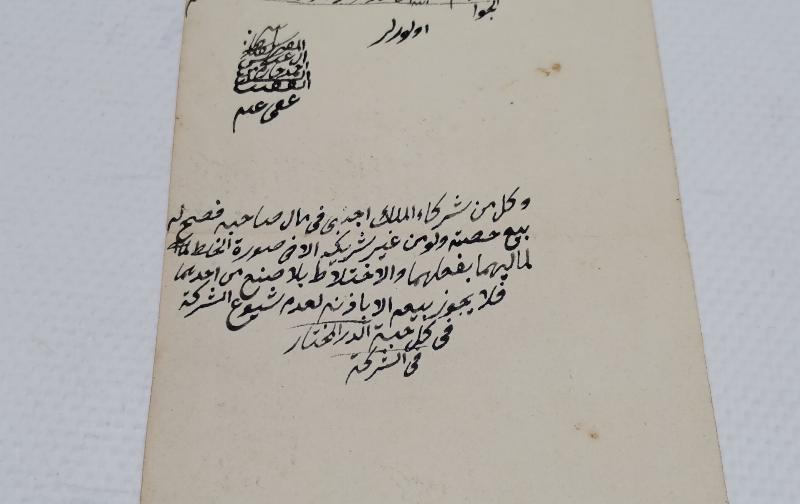 الجوا
اولورلر
الفقير
عفى عنه
وكل من شركاء الملك اجنبى فى مال صاحبه فصح له
بيع حصته ولو من غير شريكه الا فى صورة الخلط
لماليهما بفعلهما والاختلاط بلا صنع من احدهما
فلا يجوز بيعه الا باذنه لعدم شيوع الشركة
فى كل حبة الدر المختار
فى الشركة